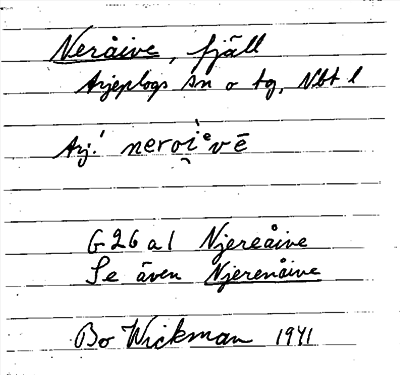 Neråive, fjäll
Arjeplogs sn o tg, Nbt l
Arj.! neroi̯ᵉvē
G 26 a 1 Njereåive
Se även Njerenåive
Bo Wickman 1941